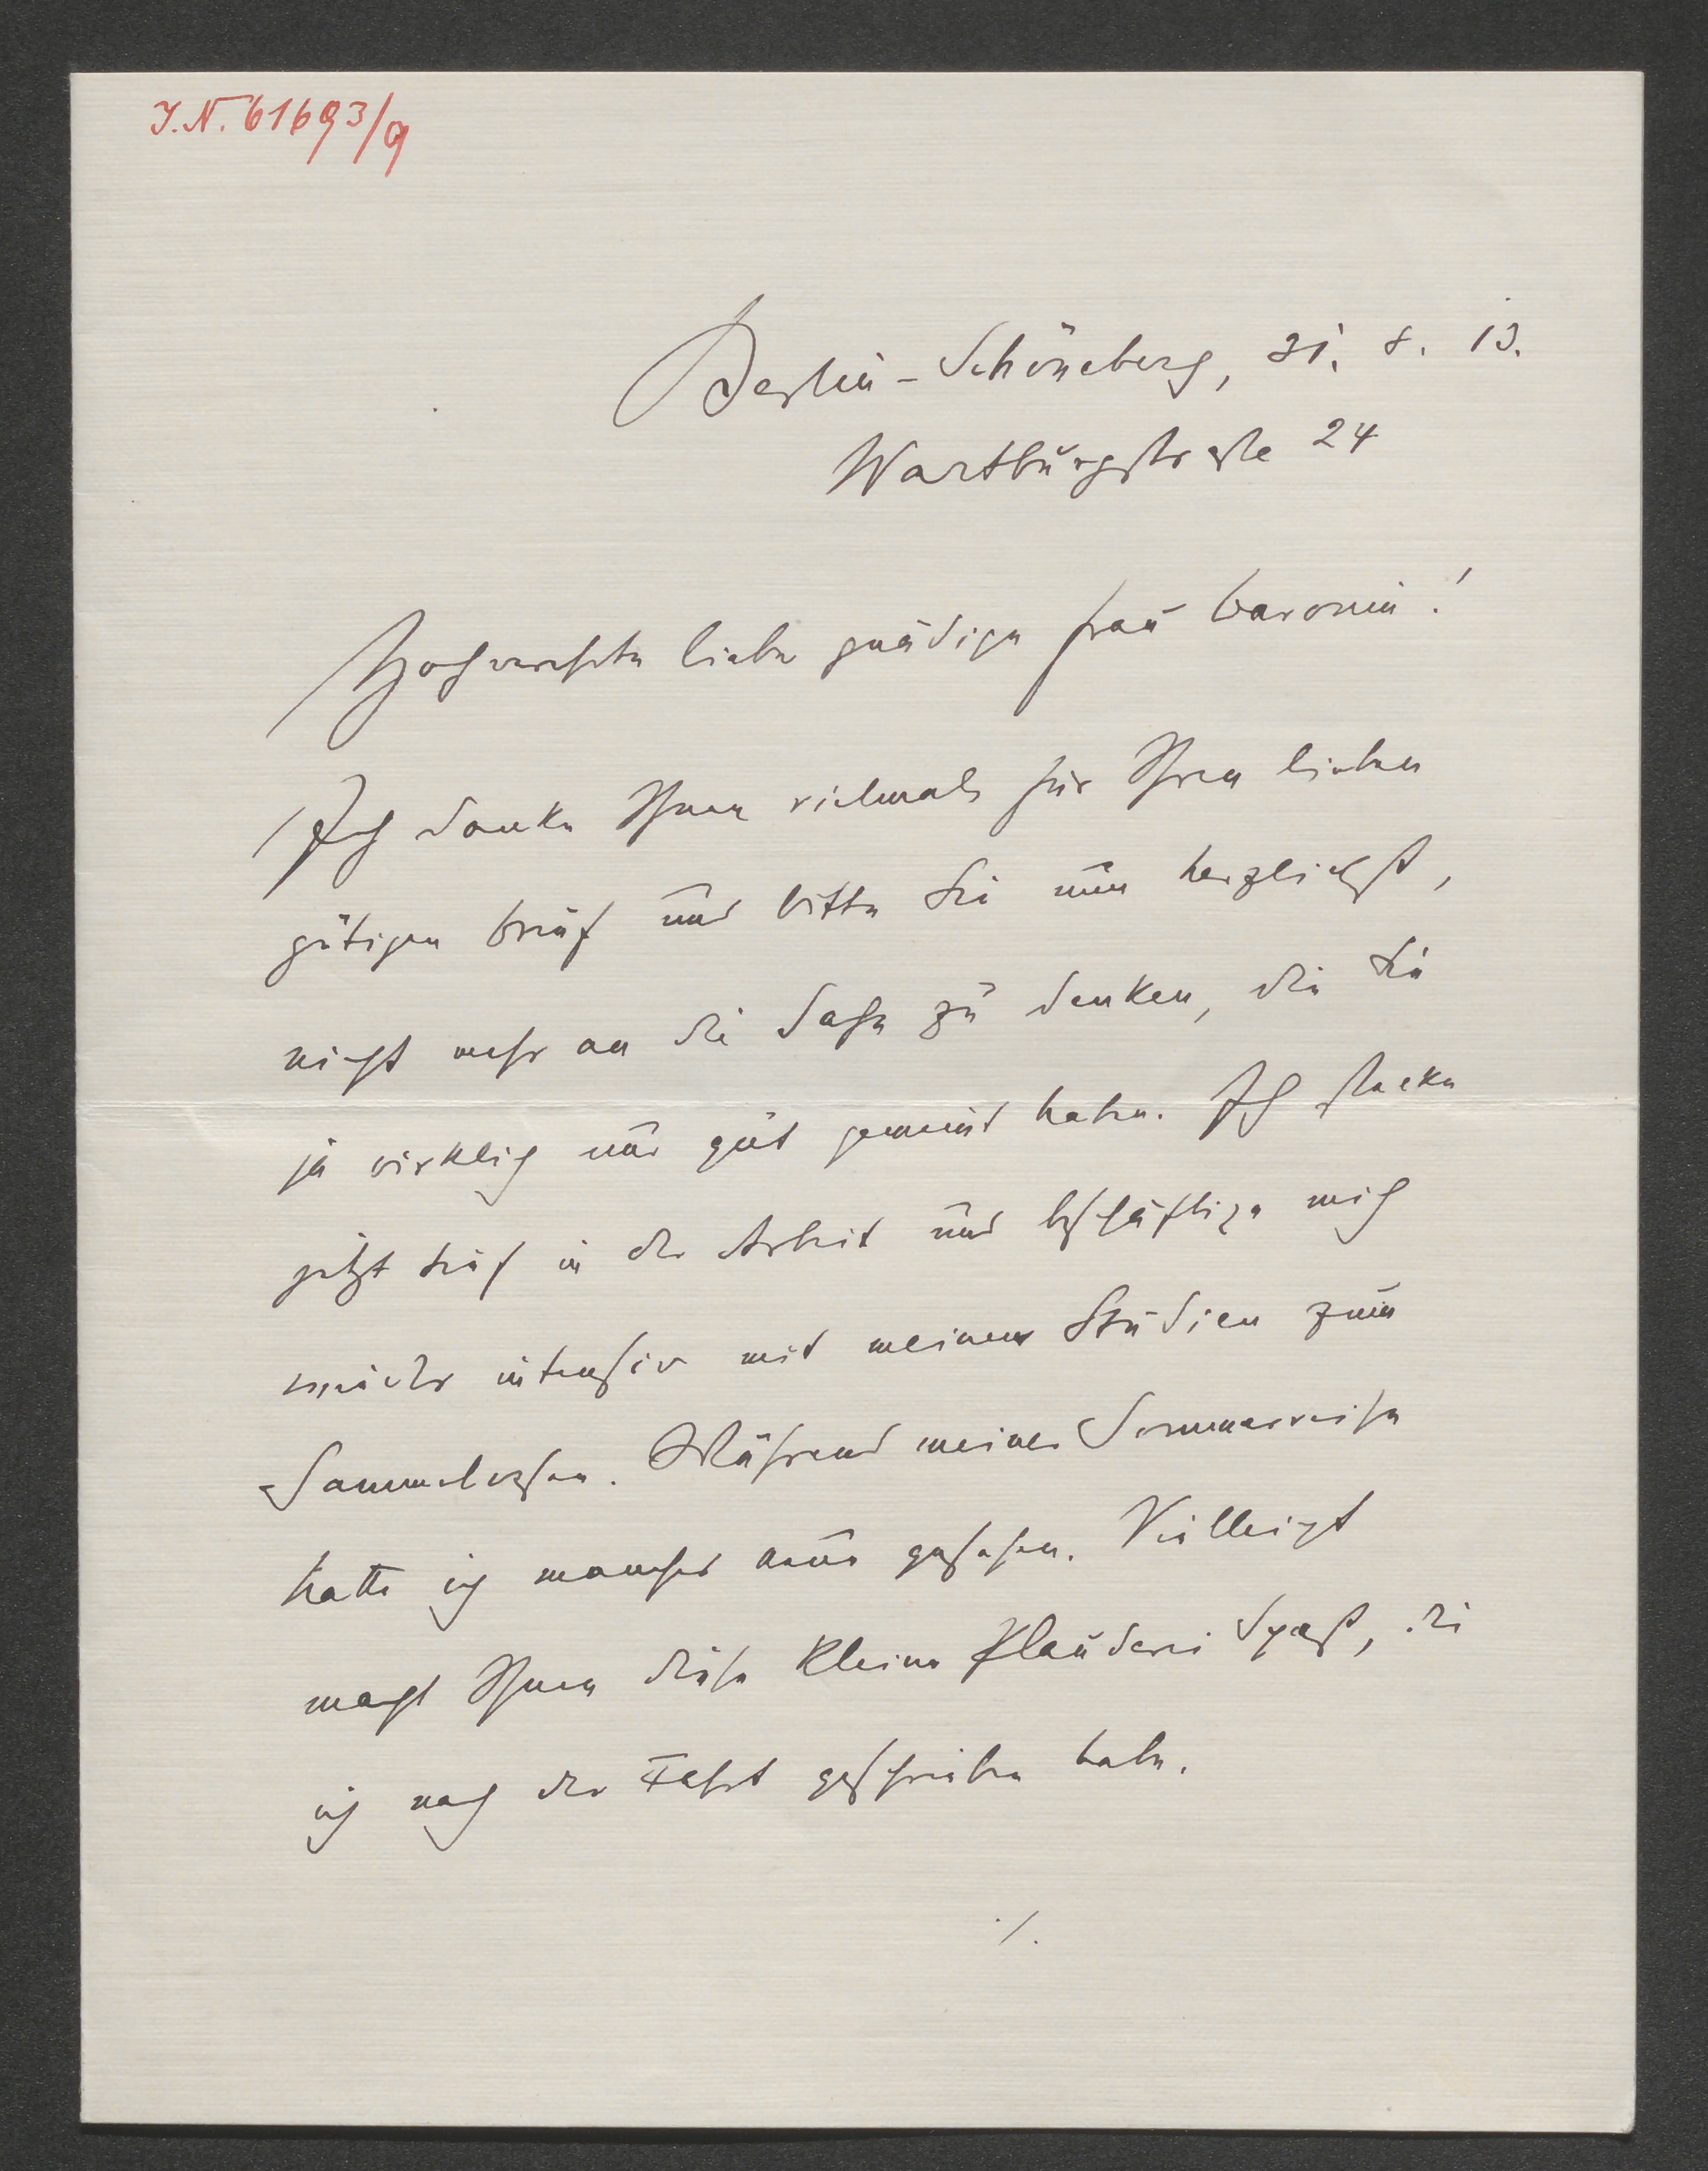 I.N. 61693/9
Berlin-Schöneberg, 31. 8. 13.
Wartburgstraße 24
Hochverehrte liebe gnädige Frau Baronin!
Ich danke Ihnen vielmals für Ihren lieben
gütigen Brief und bitte Sie nun herzlichst,
nicht mehr an die Sache zu denken, die Sie
ja wirklich nur gut gemeint haben. Ich stecke
jetzt tief in der Arbeit und beschäftige mich
wieder intensiv mit meinen Studien zum
Sammelwesen. Während meiner Sommerreise
hatte ich manches neue gesehen. Vielleicht
macht Ihnen diese kleine Plauderei Spaß, die
ich nach der Fahrt geschrieben habe.
./.